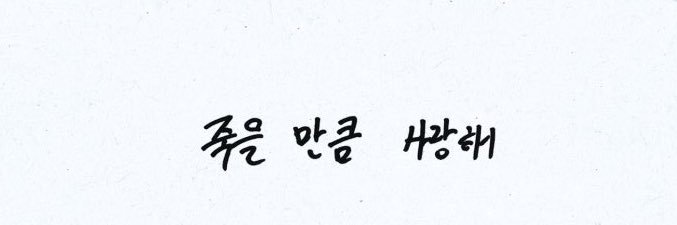 죽을 만큼 사랑해